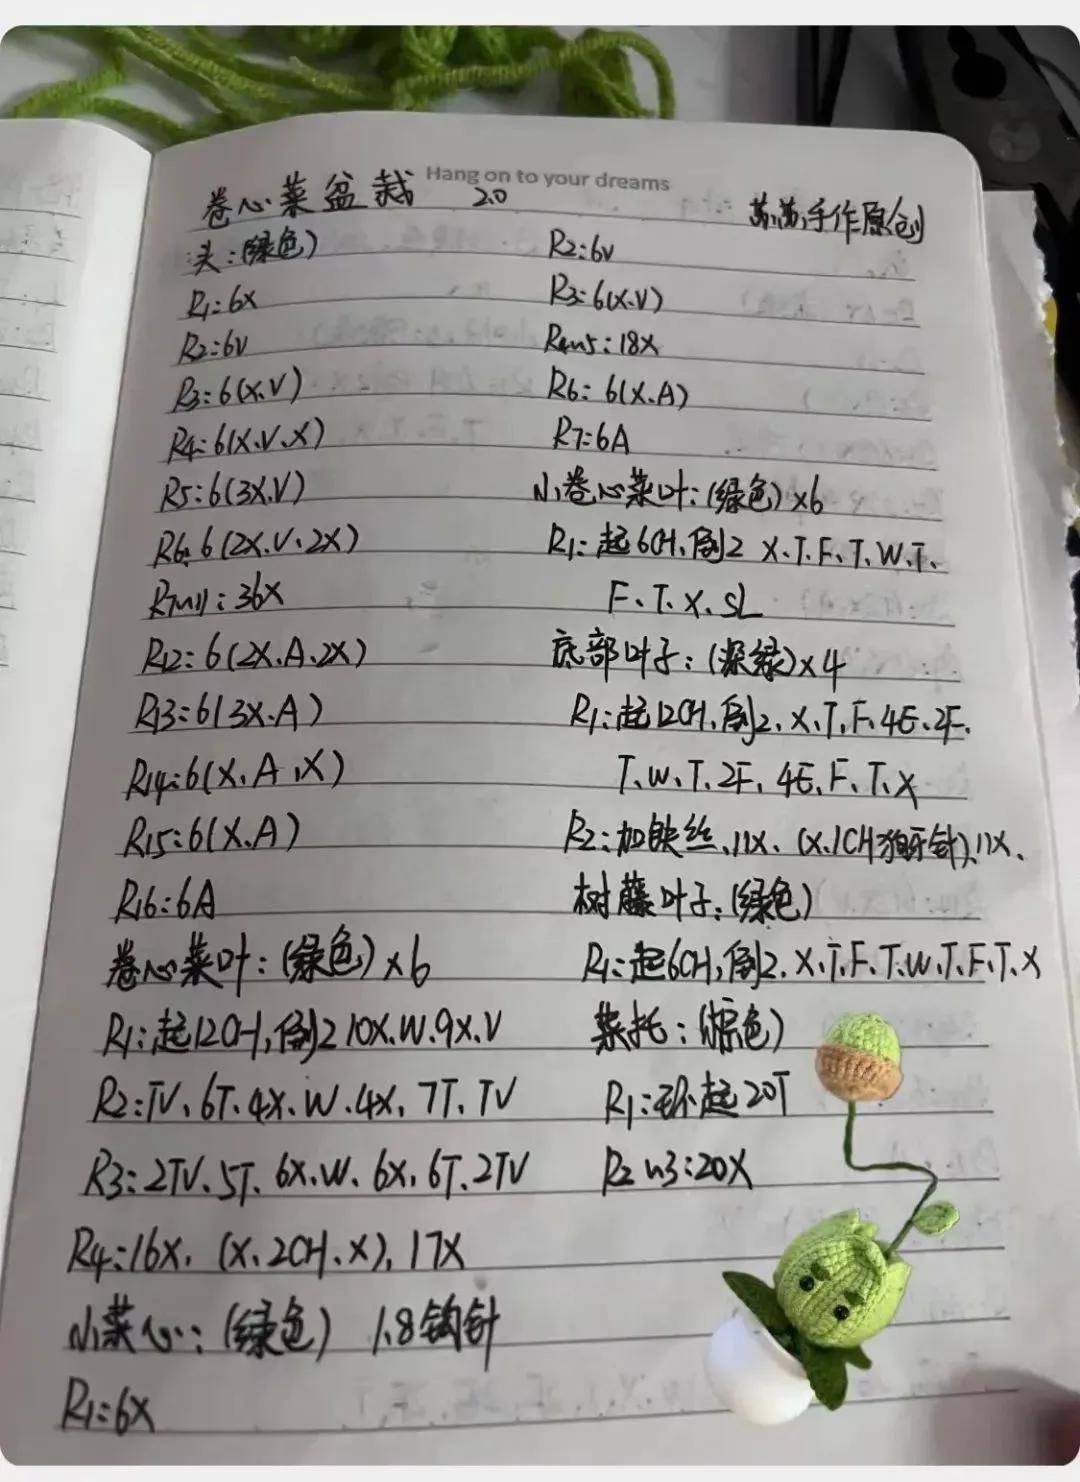 Hang on to your dreams
卷心菜盆栽 2.0
苏苏手作原创
头:(绿色)
R1:6X
R2:6V
R3:6(X.V)
R4:6(X.V.X)
R5:6(3X.V)
R6:6(2X.V.2X)
R7~11:36X
R12:6(2X.A.2X)
R13:6(3X.A)
R14:6(X.A.X)
R15:6(X.A)
R16:6A
卷心菜叶:(绿色)×6
R1:起12CH,倒2 10X.W.9X.V
R2:TV、6T.4X.W.4X,7T、TV
R3:2TV、5T.6X.W.6X,6T、2TV
R4:16X,(X.2CH.X),17X
小菜心:(绿色) 1.8钩针
R1:6X
R2:6V
R3:6(X.V)
R4~5:18X
R6:6(X.A)
R7:6A
小卷心菜叶:(绿色)×6
R1:起6CH,倒2 X.T.F.T.W.T.
F、T.X.SL
底部叶子:(深绿)×4
R1:起12CH,倒2.X.T.F.4E.2F.
T.W.T.2F.4E.F.T.X
R2:加铁丝、11X、(X.1CH狗牙针),11X、
树藤叶子:(绿色)
R1:起6CH,倒2.X.T.F.T.W.T.F.T.X
菜托:(棕色)
R1:环起20T
R2~3:20X